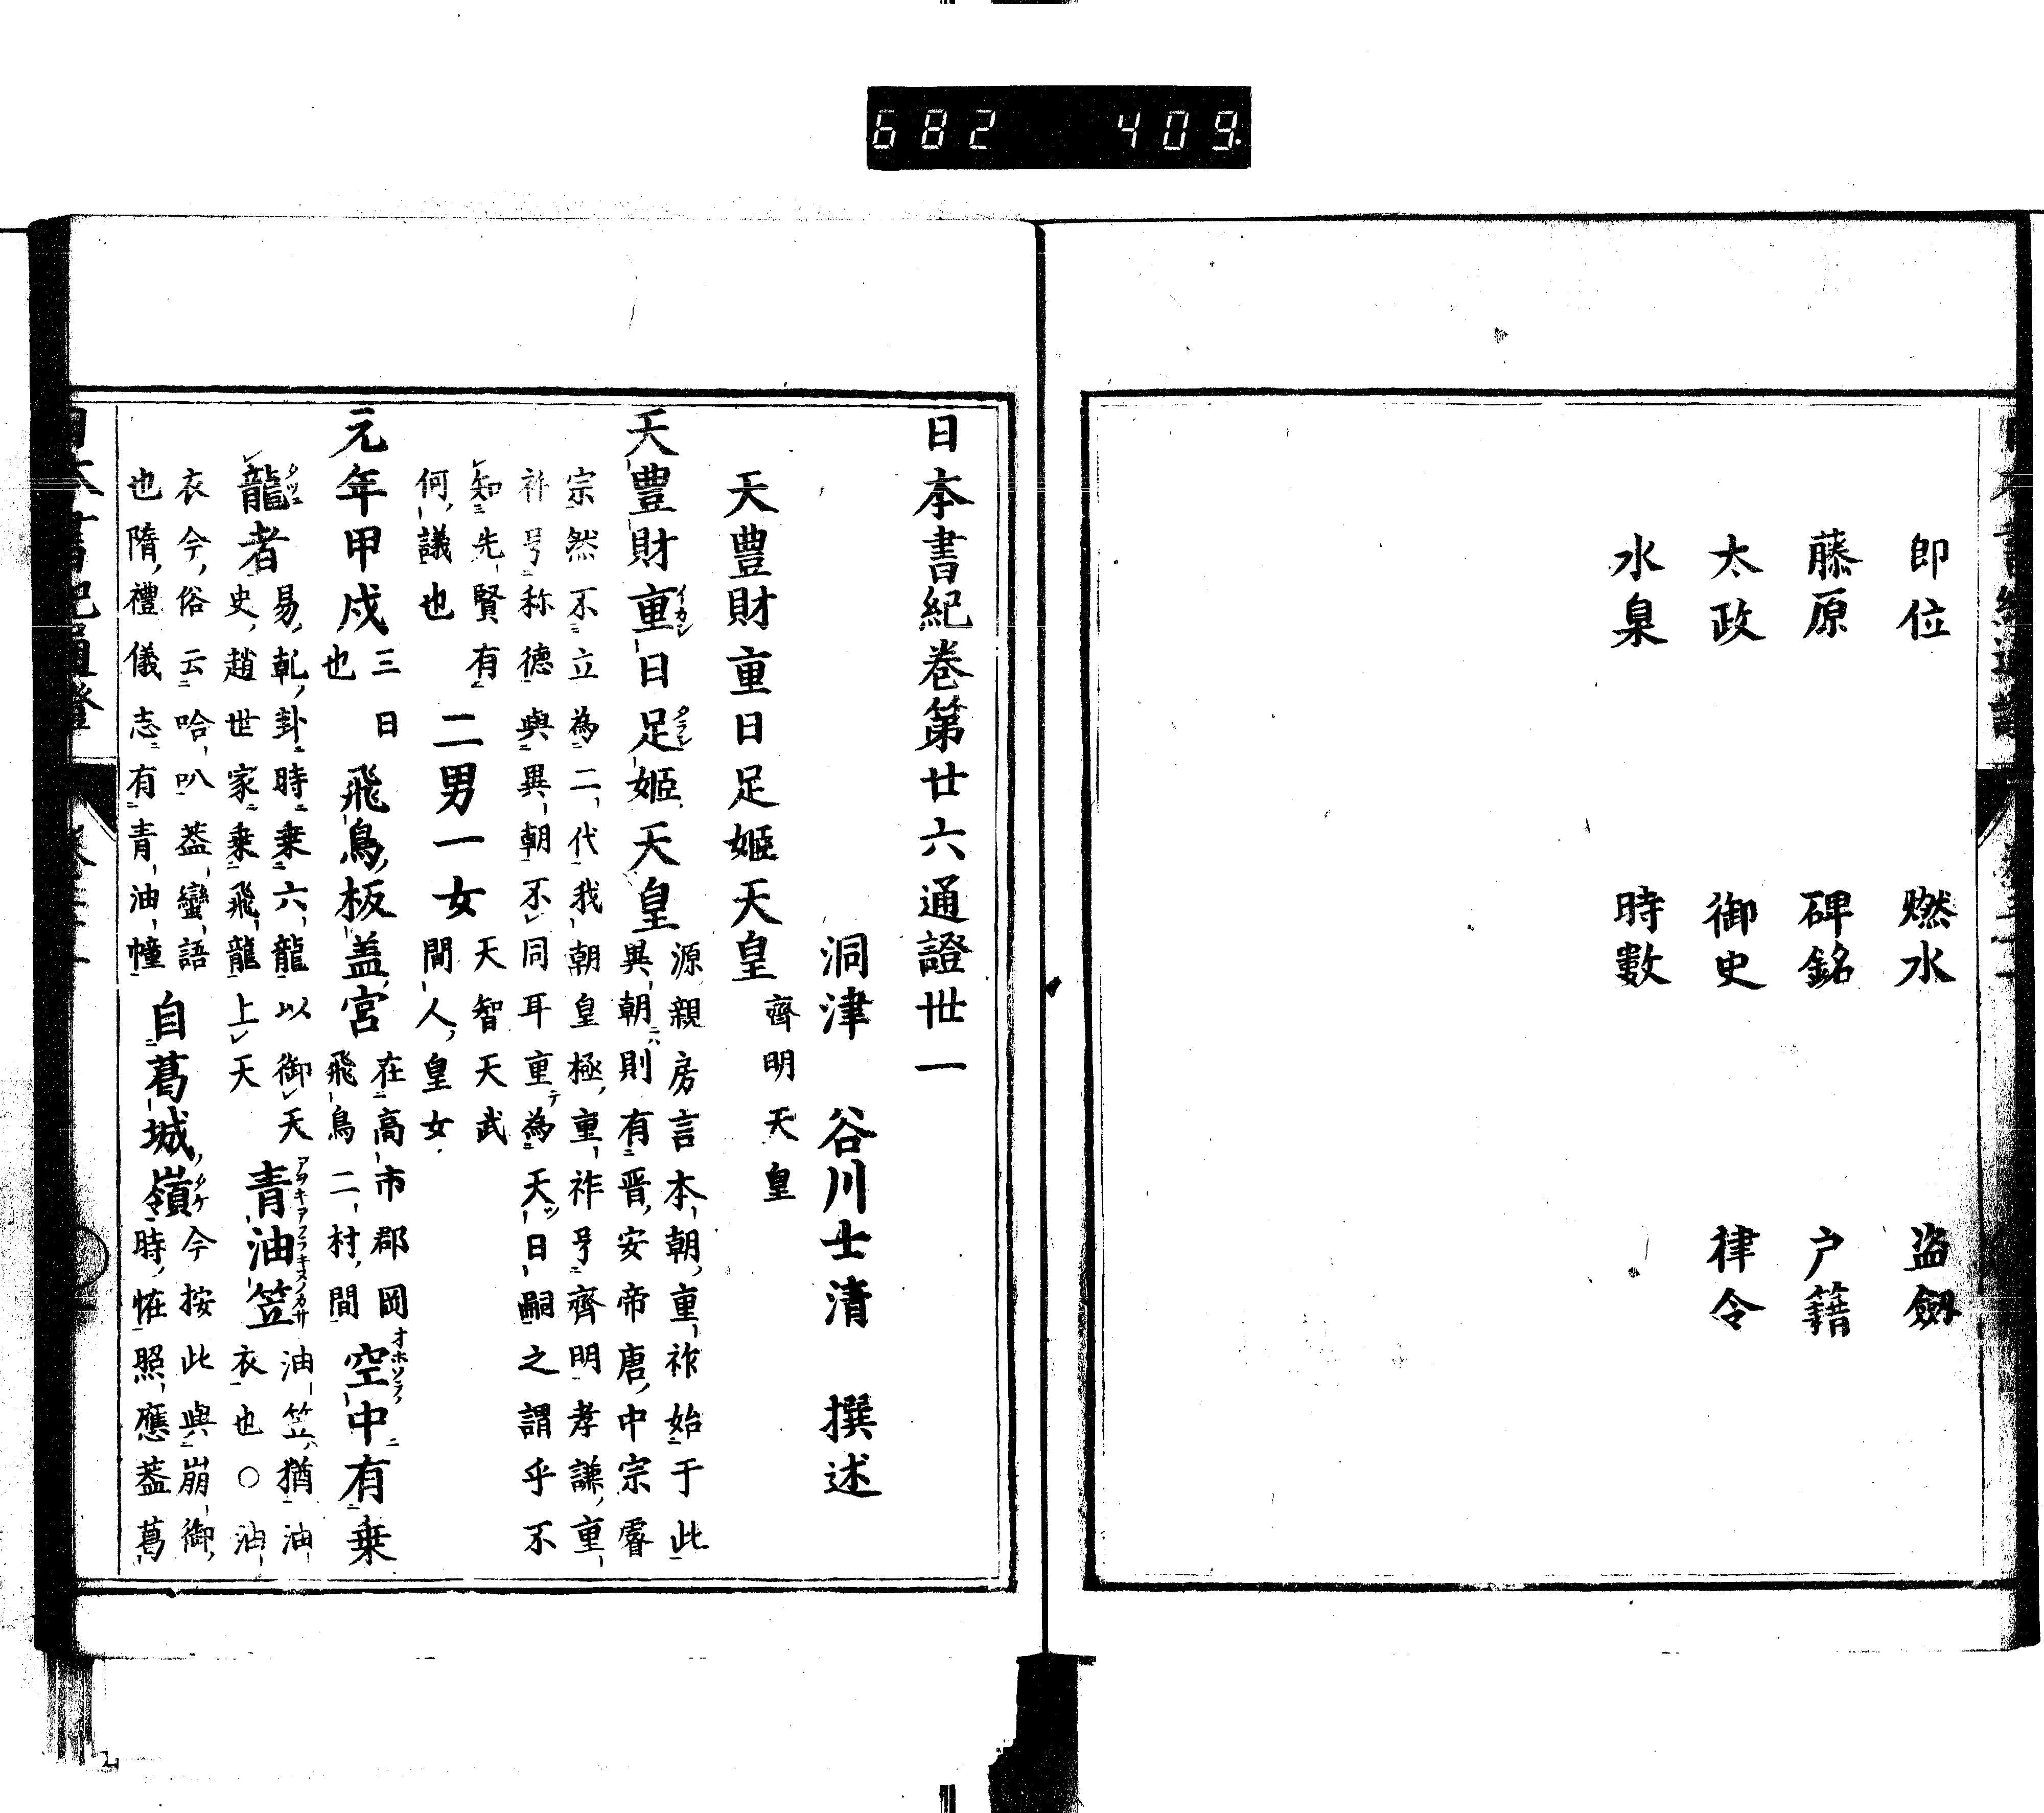 682 409
即位 燃水 盗劔
藤原 碑銘 户籍
太政 御史 律令
水臬 時數
日本書紀卷第廿六通證卅一
洞津 谷川士清 撰述
天豐財重日足姬天皇 齊明天皇
天豐財重日足姬天皇
源親房言本朝重祚始于此
異朝則有晋安帝唐中宗睿
宗然不立為二代我朝皇極重祚号齊明孝謙重
祚号称德與異朝不同耳重為天日嗣之謂乎不
知先賢有
何議也
二男一女
天智天武
間人皇女
元年甲戌
三日
也
飛鳥板盖宮
在高市郡岡
飛鳥二村間
空中有乗
龍者
易乹卦時乗六龍以御天
史趙世家乗飛龍上天
青油笠
油笠猶油
衣也○油
衣今俗云哈叭葢蠻語
也隋禮儀志有青油幢
自葛城嶺
今按此與崩御
時恠照應葢葛